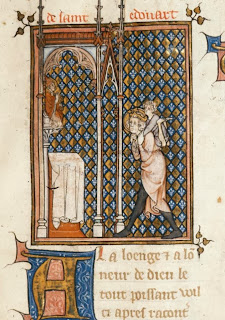 de saint edouart
A la loenge ⁊ a lō
neur de dieu le
tout puissant voil
ci apres racont'